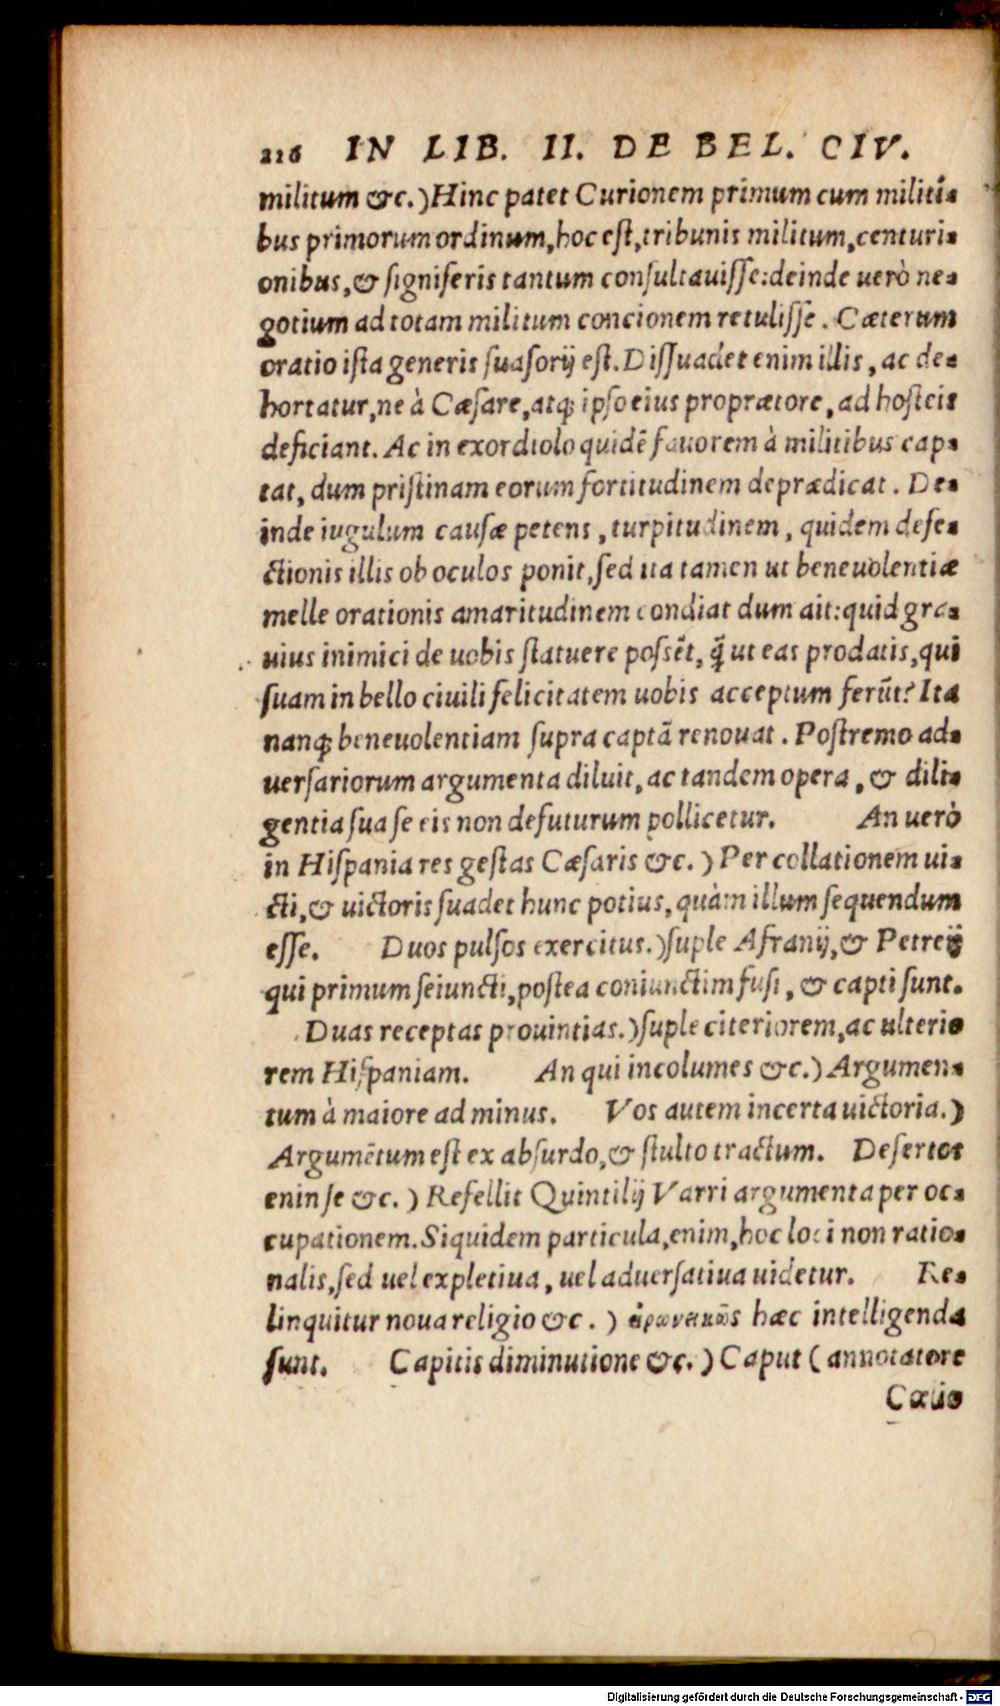 216 IN LIB. II. DE BEL. CIV.
militum &c.) Hinc patet Curionem primum cum militi-
bus primorum ordinum, hoc est, tribunis militum, centuri-
onibus, & signiferis tantum consultauisse: deinde uerò ne-
gotium ad totam militum concionem retulisse. Cæterum
oratio ista generis suasorij est. Dissuadet enim illis, ac de-
hortatur, ne à Cæsare, atq; ipso eius proprætore, ad hosteis
deficiant. Ac in exordiolo quidē fauorem à militibus cap-
tat, dum pristinam eorum fortitudinem deprædicat. De-
inde iugulum causæ petens, turpitudinem, quidem defe-
ctionis illis ob oculos ponit, sed ita tamen ut beneuolentiæ
melle orationis amaritudinem condiat dum ait: quid gra-
uius inimici de uobis statuere possēt, q̄ ut eas prodatis, qui
suam in bello ciuili felicitatem uobis acceptum ferūt? Ita
nanq; beneuolentiam supra captā renouat. Postremo ad-
uersariorum argumenta diluit, ac tandem opera, & dili-
gentia sua se eis non defuturum pollicetur. An uerò
in Hispania res gestas Cæsaris &c.) Per collationem ui-
cti, & uictoris suadet hunc potius, quàm illum sequendum
esse. Duos pulsos exercitus.) suple Afranij, & Petreij
qui primum seiuncti, postea coniunctim fusi, & capti sunt.
Duas receptas prouintias.) suple citeriorem, ac ulterio
rem Hispaniam. An qui incolumes &c.) Argumen-
tum à maiore ad minus. Vos autem incerta uictoria.)
Argumētum est ex absurdo, & stulto tractum. Desertos
enin se &c.) Refellit Quintilij Varri argumenta per oc-
cupationem. Siquidem particula, enim, hoc loci non ratio-
nalis, sed uel expletiua, uel aduersatiua uidetur. Re-
linquitur noua religio &c.) εἰρωνικῶς hæc intelligenda
sunt. Capitis diminutione &c.) Caput (annotatore
Cælio